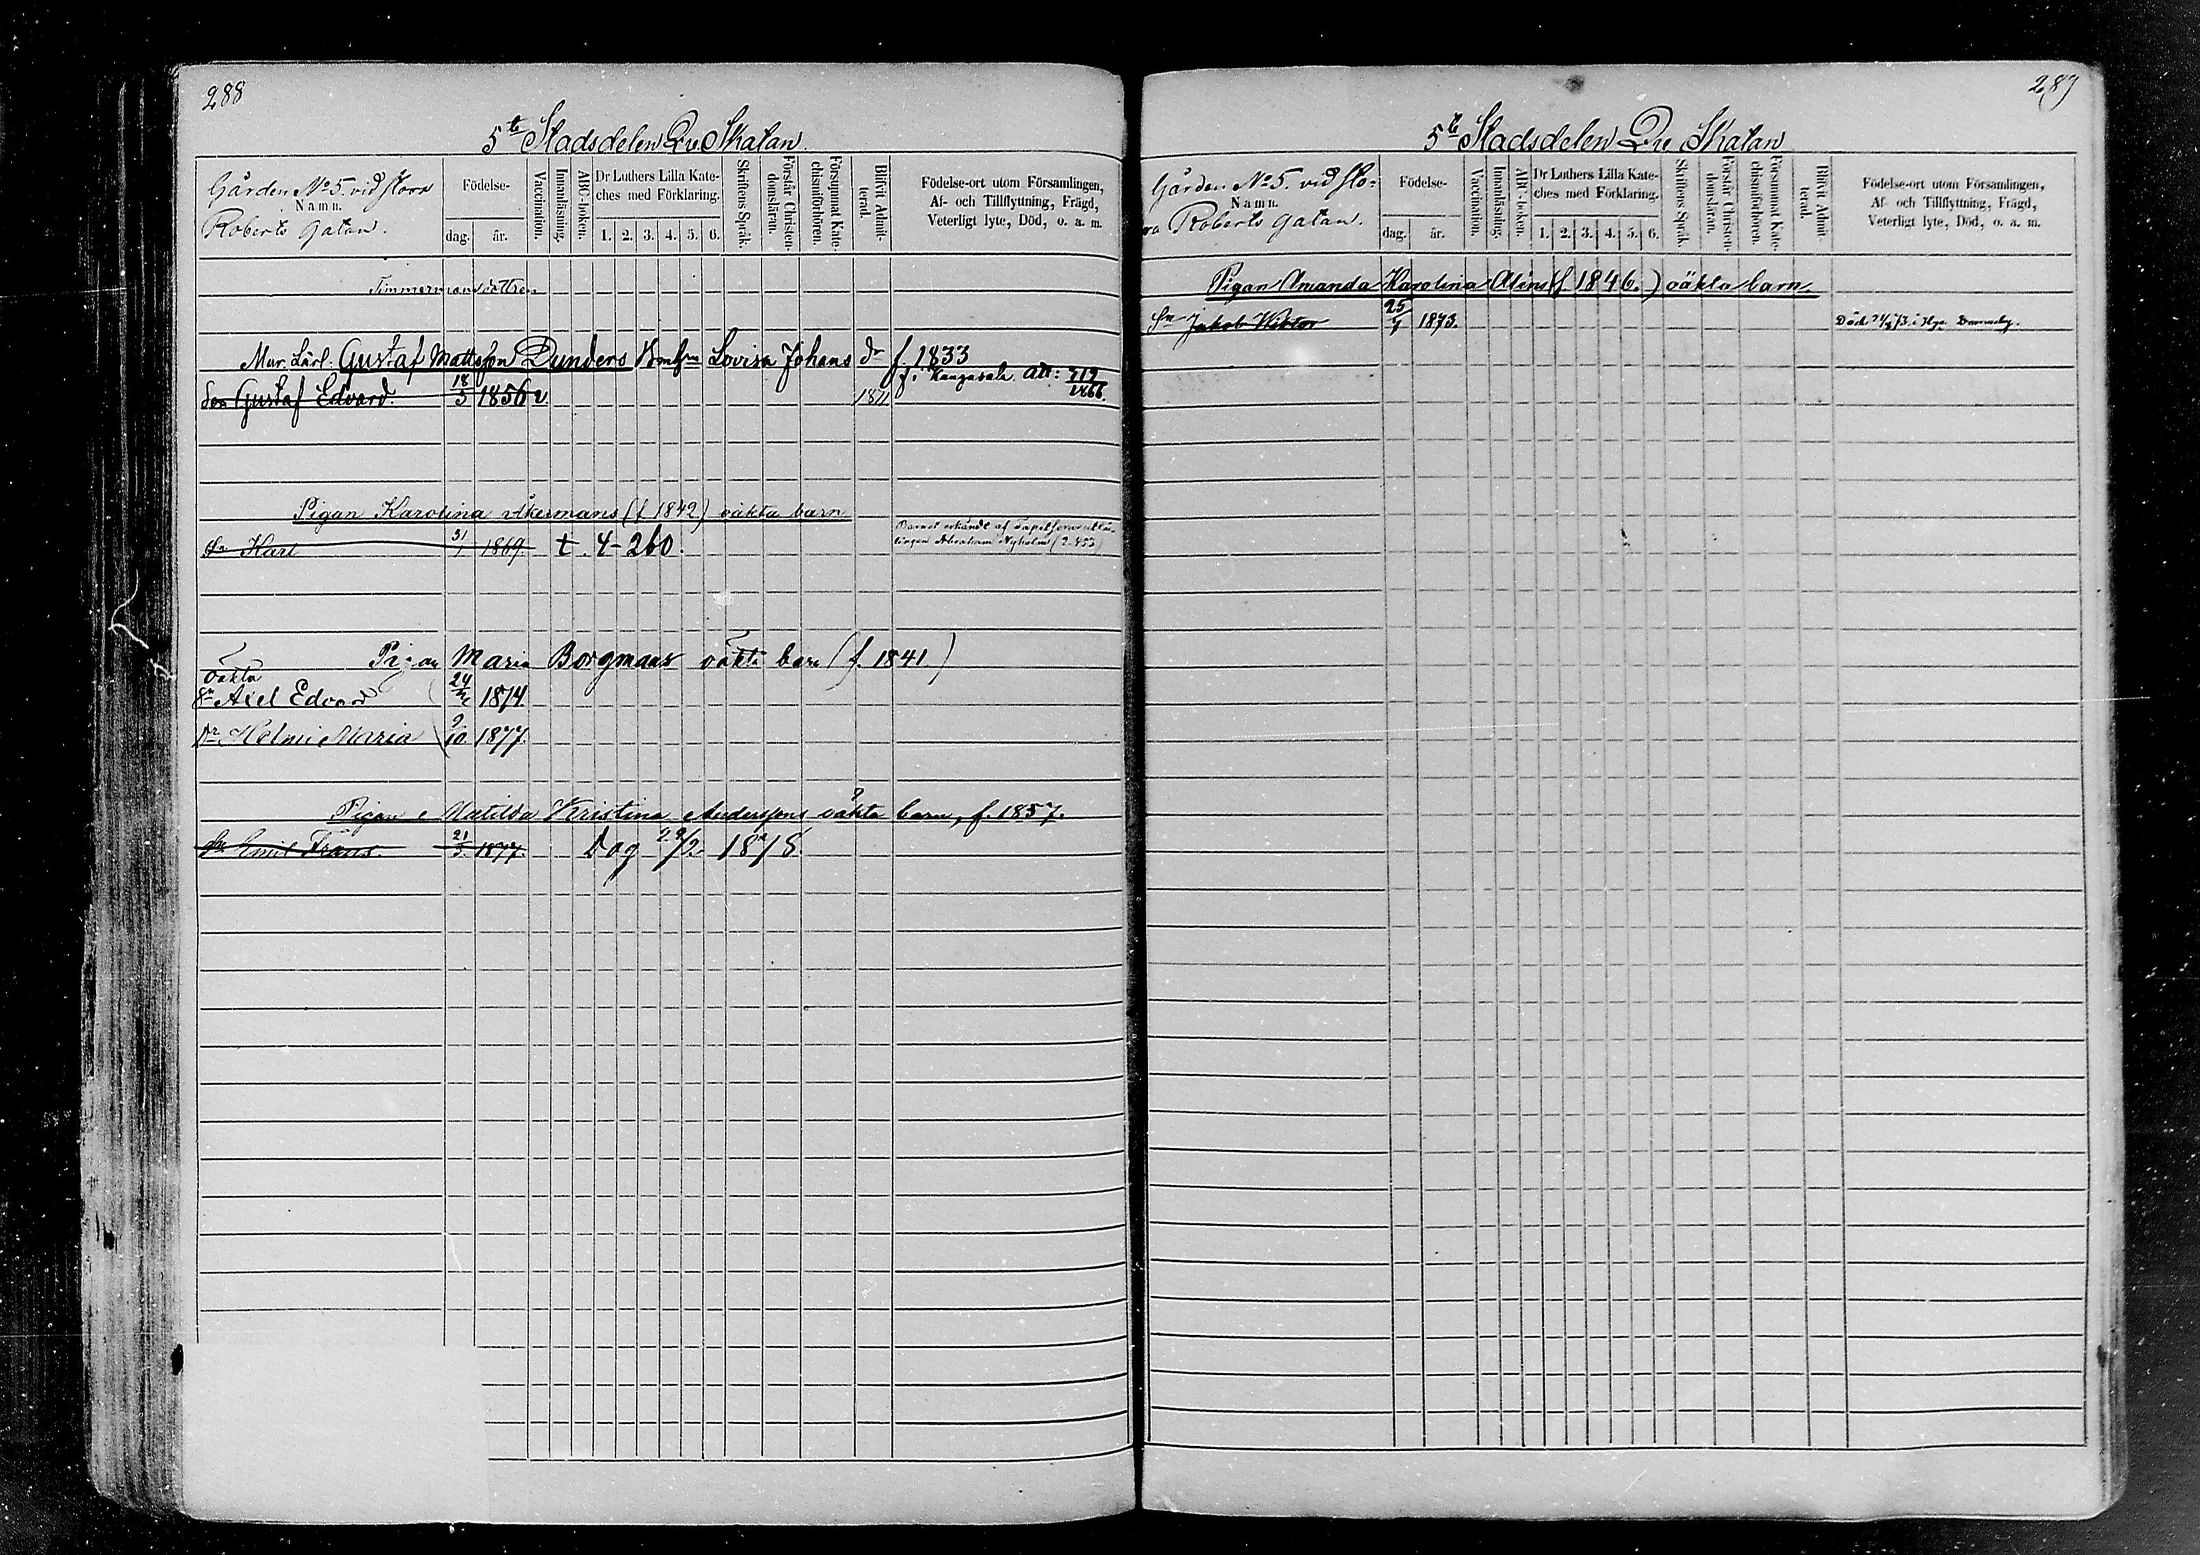 288
5te Stadsdelen Qu Skatan
Gården No 5. vid Stora
Namn.
Roberts gatan.
Födelse-
dag. år.
Vaccination.
Innanläsning.
ABC-boken.
Dr Luthers Lilla Kate-
ches med Förklaring.
1. 2. 3. 4. 5. 6.
Skriftens Språk.
Förstår Christen-
domsläran.
Försummat Kate-
chismiförhören.
Blifvit Admit-
terad.
Födelse-ort utom Församlingen,
Af- och Tillflyttning, Frägd,
Veterligt lyte, Död, o. a. m.
Timmermansdottren
Mur. Lärl. Gustaf Mattsson Dunders Lovisa Johans dr f. 1833
f. i Kangasala Att: 719/1866.
Son Gustaf Edvard. 18/3 1856 v 1871
Pigan Karolina Åkermans (f 1842) oäkta barn
Barnet erkändt af
Abraham Nyholm (2.453)
Sn Karl 31/1 1869. t. 4-260.
Pigan Maria Borgmans oäkta barn (f. 1841.)
oäkta
Sn Axel Edvard 24/2 1874.
Dr Helmi Maria 9/10. 1877.
Pigan Matilda Kristina Anderssons oäkta barn, f. 1857.
Sn Emil Frans. 21/3. 1877. Dog 22/2. 1878.
289
5te Stadsdelen Qu Skatan
Gården No 5. vid Sto-
Namn.
ra Roberts gatan.
Födelse-
dag. år.
Vaccination.
Innanläsning.
ABC-boken.
Dr Luthers Lilla Kate-
ches med Förklaring.
1. 2. 3. 4. 5. 6.
Skriftens Språk.
Förstår Christen-
domsläran.
Försummat Kate-
chismiförhören.
Blifvit Admit-
terad.
Födelse-ort utom Församlingen,
Af- och Tillflyttning, Frägd,
Veterligt lyte, Död, o. a. m.
Pigan Amanda Karolina Aléns (f 1846.) oäkta barn.
Sn Jakob Wiktor 25/7 1873. Död i